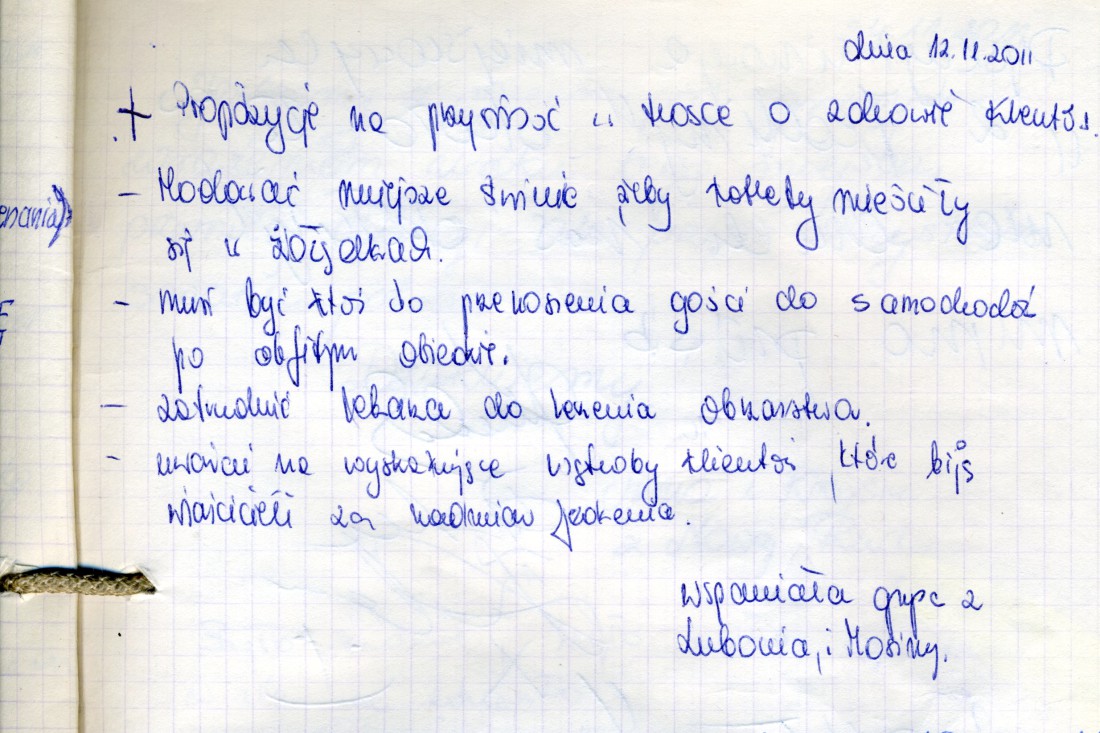 dnia 12.11.2011
+ Propozycje na przyszłość w trosce o zdrowie klientów.
- Hodować mniejsze świnie żeby kotlety mieściły
się w żołądkach.
- musi być ktoś do przenoszenia gości do samochodów
po obfitym obiedzie.
- zatrudnić lekarza do leczenia obżarstwa.
- uważać na wyskakujące wątroby klientów, które biją
właścicieli za nadmiar jedzenia.
wspaniała grupa z
Lubonia, i Mosiny.